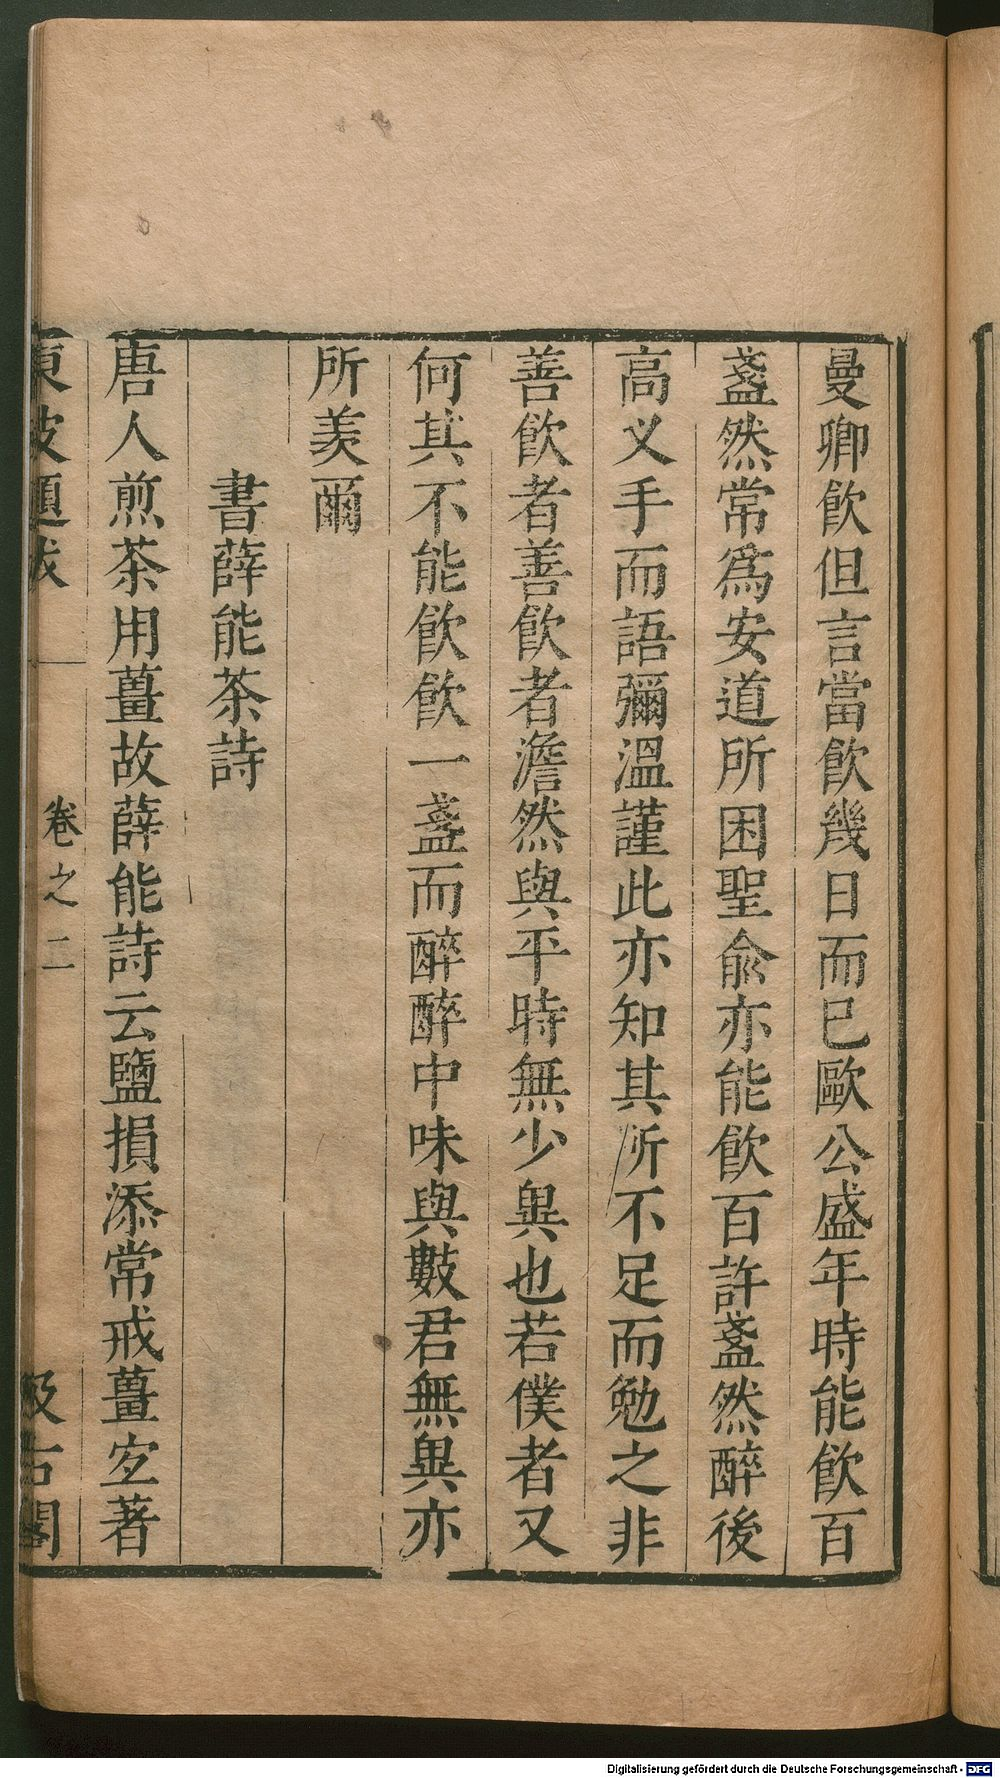 曼卿飲但言當飲幾日而已歐公盛年時能飲百
盞然常爲安道所困聖俞亦能飲百許盞然醉後
高义手而語彌溫謹此亦知其所不足而勉之非
善飲者善飲者澹然與平時無少異也若僕者又
何其不能飲飲一盞而醉醉中味與數君無異亦
所羨爾
書薛能茶詩
唐人煎茶用薑故薛能詩云鹽損添常戒薑宐著
東坡題跋 卷之二 汲古閣
Digitalisierung gefördert durch die Deutsche Forschungsgemeinschaft - DFG